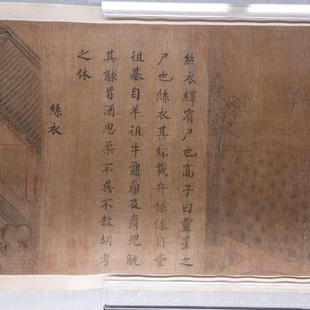 絲衣繹賓尸也高子曰靈星之
尸也絲衣其紑載弁俅俅自堂
徂基自羊徂牛鼐鼎及鼒兕觥
其觩旨酒思柔不吳不敖胡考
之休
絲衣